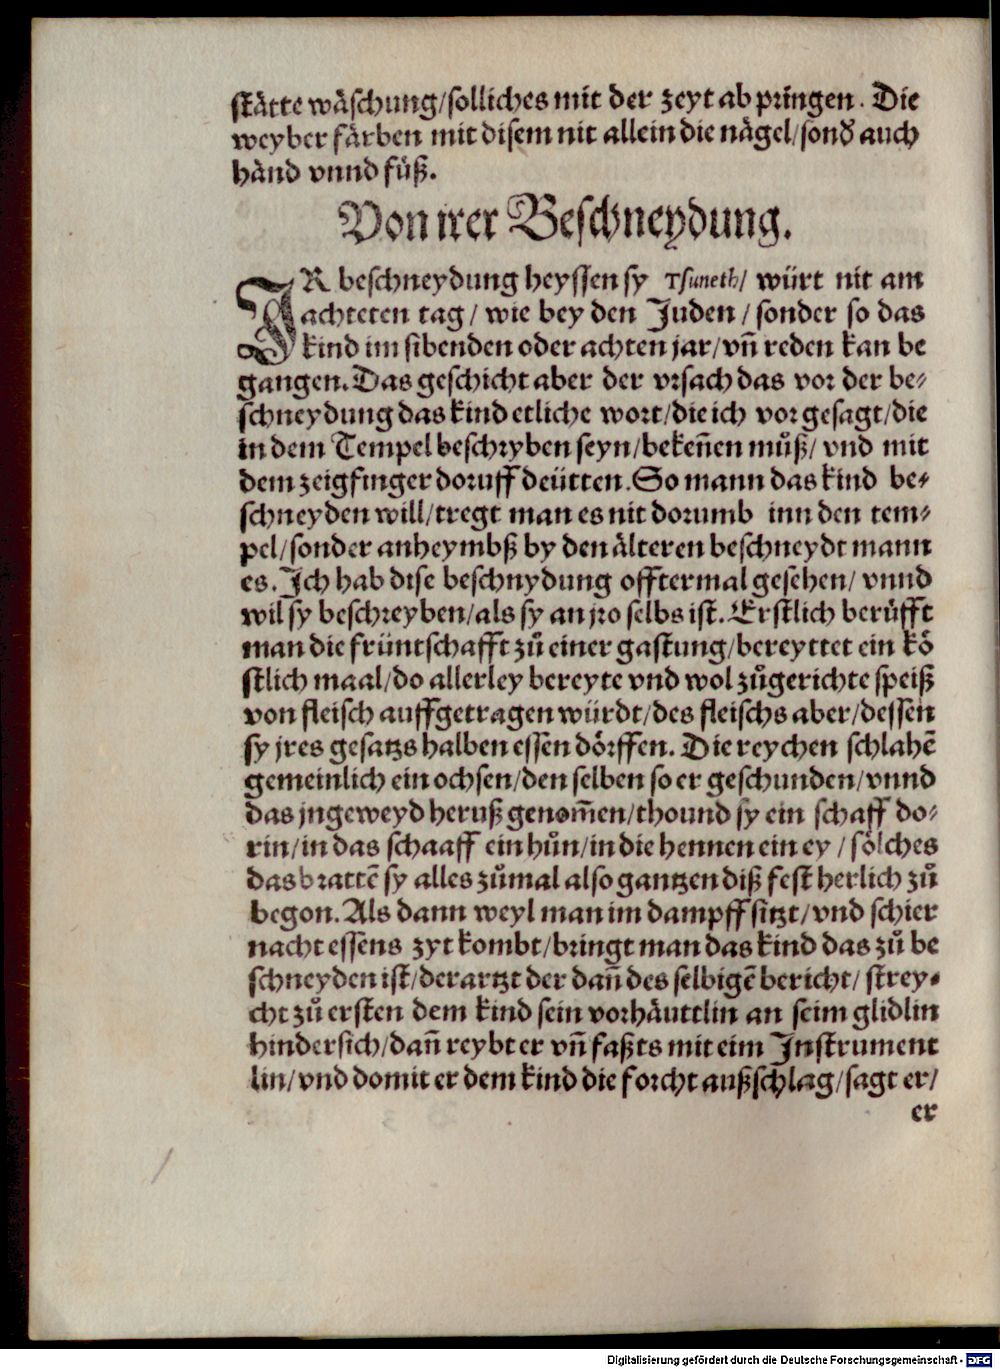 stätte wäschung/solliches mit der zeyt ab pringen. Die
weyber färben mit disem nit allein die nägel/sonđ auch
händ vnnd füß.
Von irer Beschneydung.
IR beschneydung heyssen sy Tsuneth/ würt nit am
achteten tag/ wie bey den Juden/ sonder so das
kind im sibenden oder achten jar/vñ reden kan be
gangen. Das geschicht aber der vrsach das vor der be-
schneydung das kind etliche wort/die ich vor gesagt/die
in dem Tempel beschryben seyn/bekeñen můß/ vnd mit
dem zeigfinger doruff deütten. So mann das kind be-
schneyden will/tregt man es nit dorumb inn den tem-
pel/sonder anheymbß by den älteren beschneydt mann
es. Ich hab dise beschnydung offtermal gesehen/ vnnd
wil sy beschreyben/als sy an jro selbs ist. Erstlich berüfft
man die früntschafft zů einer gastung/bereyttet ein kö
stlich maal/do allerley bereyte vnd wol zůgerichte speiß
von fleisch auffgetragen würdt/des fleischs aber/dessen
sy jres gesatzs halben essen dörffen. Die reychen schlahē
gemeinlich ein ochsen/den selben so er geschunden/vnnd
das jngeweyd heruß genom̄en/thound sy ein schaff do-
rin/in das schaaff ein hůn/in die hennen ein ey/ sölches
das brattē sy alles zůmal also gantzen diß fest herlich zů
begon. Als dann weyl man im dampff sitzt/vnd schier
nacht essens zyt kombt/bringt man das kind das zů be
schneyden ist/der artzt der dañ des selbigē bericht/ strey-
cht zů ersten dem kind sein vorhäuttlin an seim glidlin
hindersich/dañ reybt er vñ faßts mit eim Instrument
lin/vnd domit er dem kind die forcht außschlag/sagt er/
er
Digitalisierung gefördert durch die Deutsche Forschungsgemeinschaft - DFG